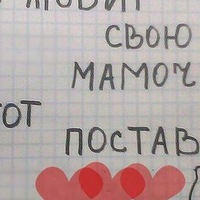 СВОЮ
МАМОЧ
ТОТ
ПОСТАВ